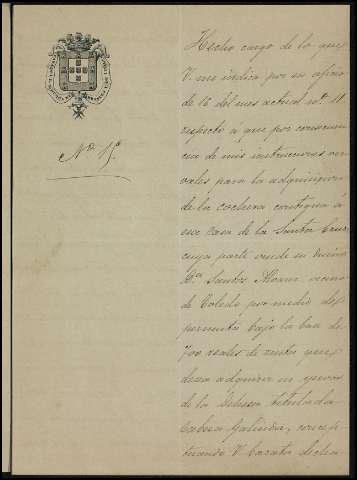 Nº 15.
Hecho cargo de lo que
V. me indica por su oficio
de 16 del mes actual nº 11
respecto a que por consecuen
cia de mis instrucciones ver
vales para la adquisicion
de la cochera contigua á
ese Casa de la Santa Cruz
cuya parte vende su dueño
Dn. Santos vecino
de Toledo por medio de
permuta bajo la base de
700 reales de renta que
desea adquirir en
de la Dehesa titulada
Cabeza Galinda,
V.